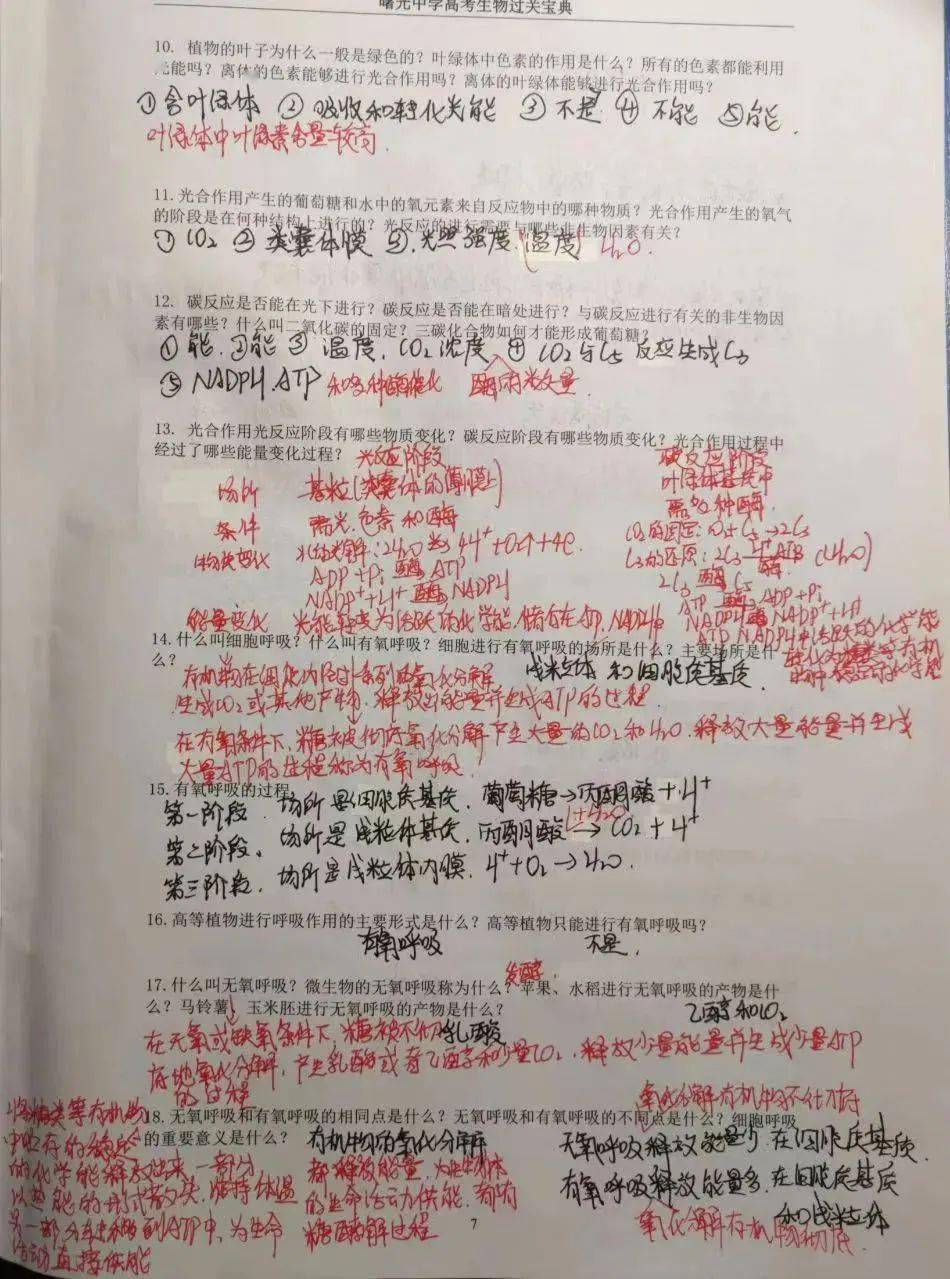 曙光中学高考生物过关宝典
10. 植物的叶子为什么一般是绿色的？叶绿体中色素的作用是什么？所有的色素都能利用
光能吗？离体的色素能够进行光合作用吗？离体的叶绿体能够进行光合作用吗？
①含叶绿体 ②吸收和转化光能 ③不是 ④不能 ⑤能.
叶绿体中叶绿素含量较高.
11. 光合作用产生的葡萄糖和水中的氧元素来自反应物中的哪种物质？光合作用产生的氧气
的阶段是在何种结构上进行的？光反应的进行需要与哪些非生物因素有关？
①CO₂ ②类囊体膜 ③.光照强度.(温度) H₂O.
12. 碳反应是否能在光下进行？碳反应是否能在暗处进行？与碳反应进行有关的非生物因
素有哪些？什么叫二氧化碳的固定？三碳化合物如何才能形成葡萄糖？
①能.②能 ③温度.CO₂浓度 ④CO₂与C₅反应生成C₃
⑤NADPH.ATP 和多种酶催化
13. 光合作用光反应阶段有哪些物质变化？碳反应阶段有哪些物质变化？光合作用过程中
经过了哪些能量变化过程？ 光反应阶段 碳反应阶段
场所 基粒(类囊体的薄膜上) 叶绿体基质中
条件 需光.色素和酶 需多种酶.
物质变化 水的光解:2H₂O 光 4H⁺+O₂↑+4e CO₂的固定:CO₂+C₅→2C₃
ADP+Pi 酶 ATP C₃的还原:2C₃
NADP⁺+H⁺ 酶 NADPH 2C₃ 酶 C₅
ATP 酶 ADP+Pi
NADPH 酶 NADP⁺+H⁺
能量变化 光能转变为活跃的化学能.储存在ATP.NADPH中 ATP NADPH中活跃的化学能
14. 什么叫细胞呼吸？什么叫有氧呼吸？细胞进行有氧呼吸的场所是什么？主要场所是什
么？ 线粒体 和细胞质基质.
有机物在细胞内经过一系列的氧化分解
生成CO₂或其他产物.释放出能量并生成ATP的过程
在有氧条件下,糖被彻底氧化分解产生大量的CO₂和H₂O.释放大量能量并生成
大量ATP的过程称为有氧呼吸.
15. 有氧呼吸的过程
第一阶段.场所是细胞质基质.葡萄糖→丙酮酸+H⁺
第二阶段.场所是线粒体基质.丙酮酸(+H₂O)→CO₂+H⁺
第三阶段.场所是线粒体内膜.H⁺+O₂→H₂O.
16. 高等植物进行呼吸作用的主要形式是什么？高等植物只能进行有氧呼吸吗？
有氧呼吸 不是.
发酵.
17. 什么叫无氧呼吸？微生物的无氧呼吸称为什么？苹果、水稻进行无氧呼吸的产物是什
么？马铃薯、玉米胚进行无氧呼吸的产物是什么？ 乙醇和CO₂
乳酸
在无氧或缺氧条件下,糖被不彻
底地氧化分解,产生乳酸或者乙醇和少量CO₂,释放少量能量并生成少量ATP
的过程
氧化分解有机物不彻底
18. 无氧呼吸和有氧呼吸的相同点是什么？无氧呼吸和有氧呼吸的不同点是什么？细胞呼吸
的重要意义是什么？ 有机物的氧化分解 无氧呼吸释放能量少.在细胞质基质.
都释放能量.为生物体 有氧呼吸释放能量多.在细胞质基质
的生命活动供能.都有 和线粒体
糖酵解过程 氧化分解有机物彻底.
将糖类等有机物
中贮存的稳定
的化学能释放出来.一部分
以热能的形式散失.维持体温
另一部分转移到ATP中.为生命
活动直接供能
7